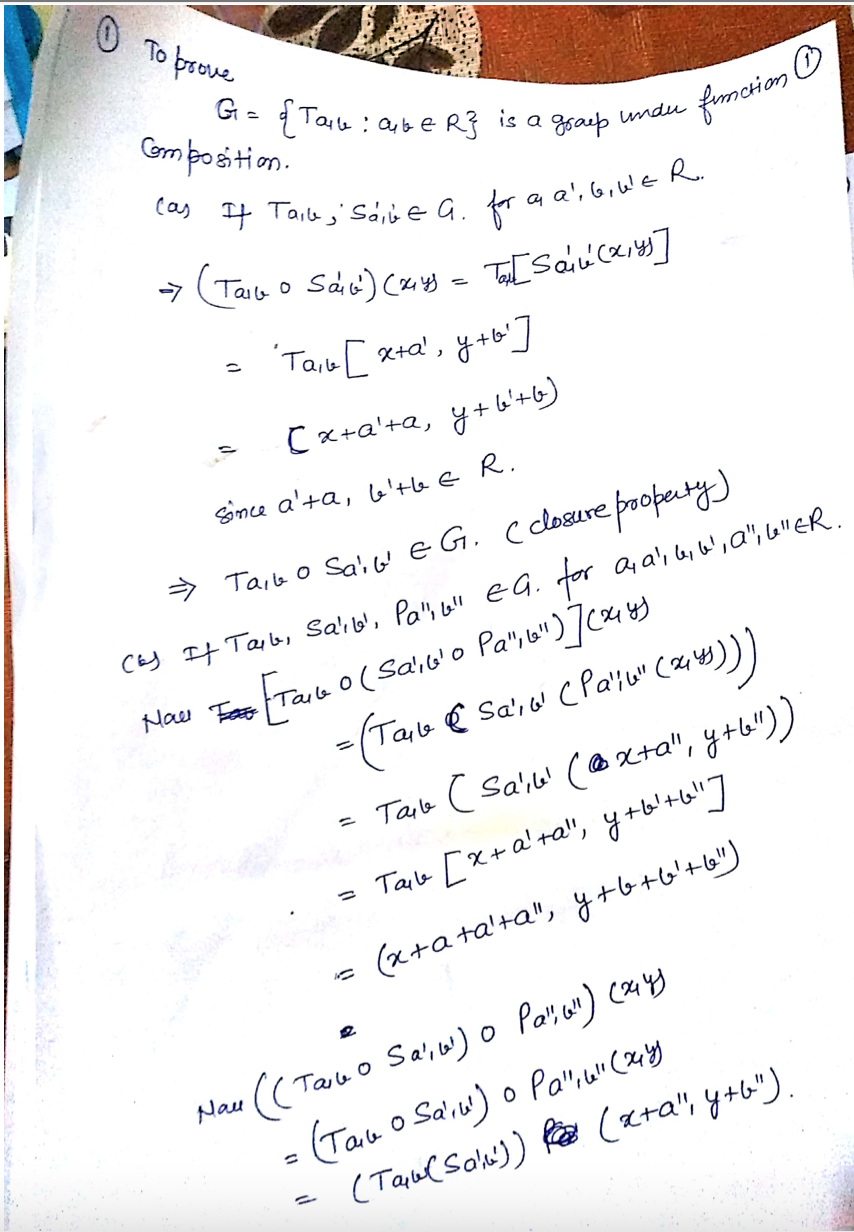 ① To prove ①
G = {Ta,b : a,b ∈ R} is a group under function
Composition.
(a) If Ta,b, Sa',b' ∈ G. for a, a', b, b' ∈ R.
⇒ (Ta,b o Sa',b') (x,y) = Ta,b[Sa',b'(x,y)]
= Ta,b [x+a', y+b']
= [x+a'+a, y+b'+b)
since a'+a, b'+b ∈ R.
⇒ Ta,b o Sa',b' ∈ G. (closure property)
(b) If Ta,b, Sa',b', Pa'',b'' ∈ G. for a, a', b, b', a'', b'' ∈ R.
Now [Ta,b o (Sa',b' o Pa'',b'')](x,y)
= (Ta,b ( Sa',b' (Pa'',b'' (x,y))))
= Ta,b [ Sa',b' (x+a'', y+b''))
= Ta,b [x+a'+a'', y+b'+b'']
= (x+a+a'+a'', y+b+b'+b'')
=
Now ((Ta,b o Sa',b') o Pa'',b'') (x,y)
= (Ta,b o Sa',b') o Pa'',b'' (x,y)
= (Ta,b(Sa',b')) (x+a'', y+b'').